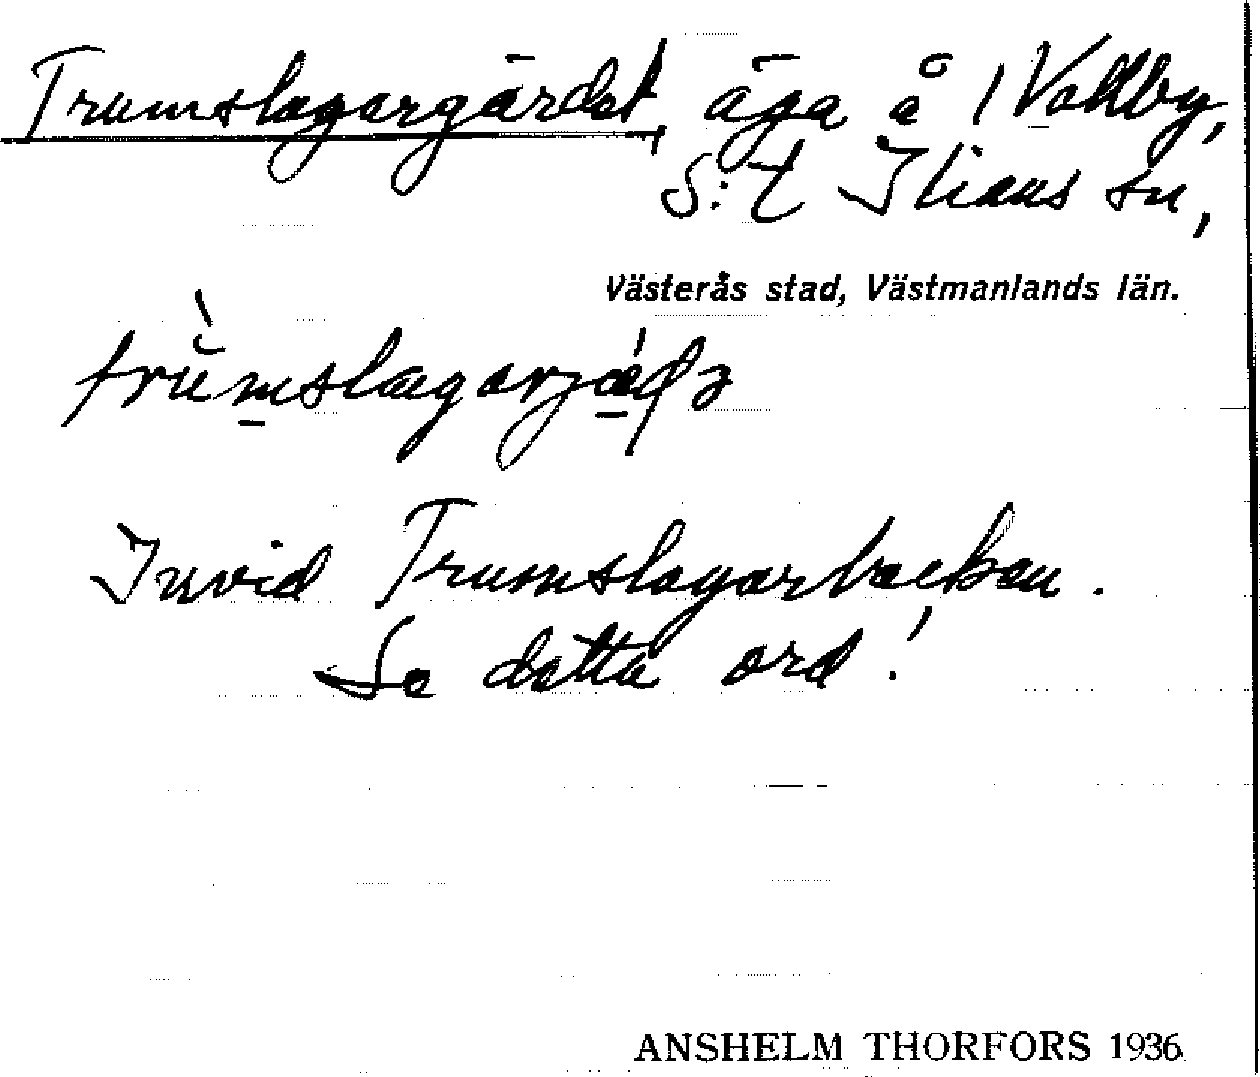 Trumslagargärdet, äga å 1 Vallby,
S:t Ilians sn,
Västerås stad, Västmanlands län.
Invid Trumslagarbacken.
Se detta ord!
ANSHELM THORFORS 1936